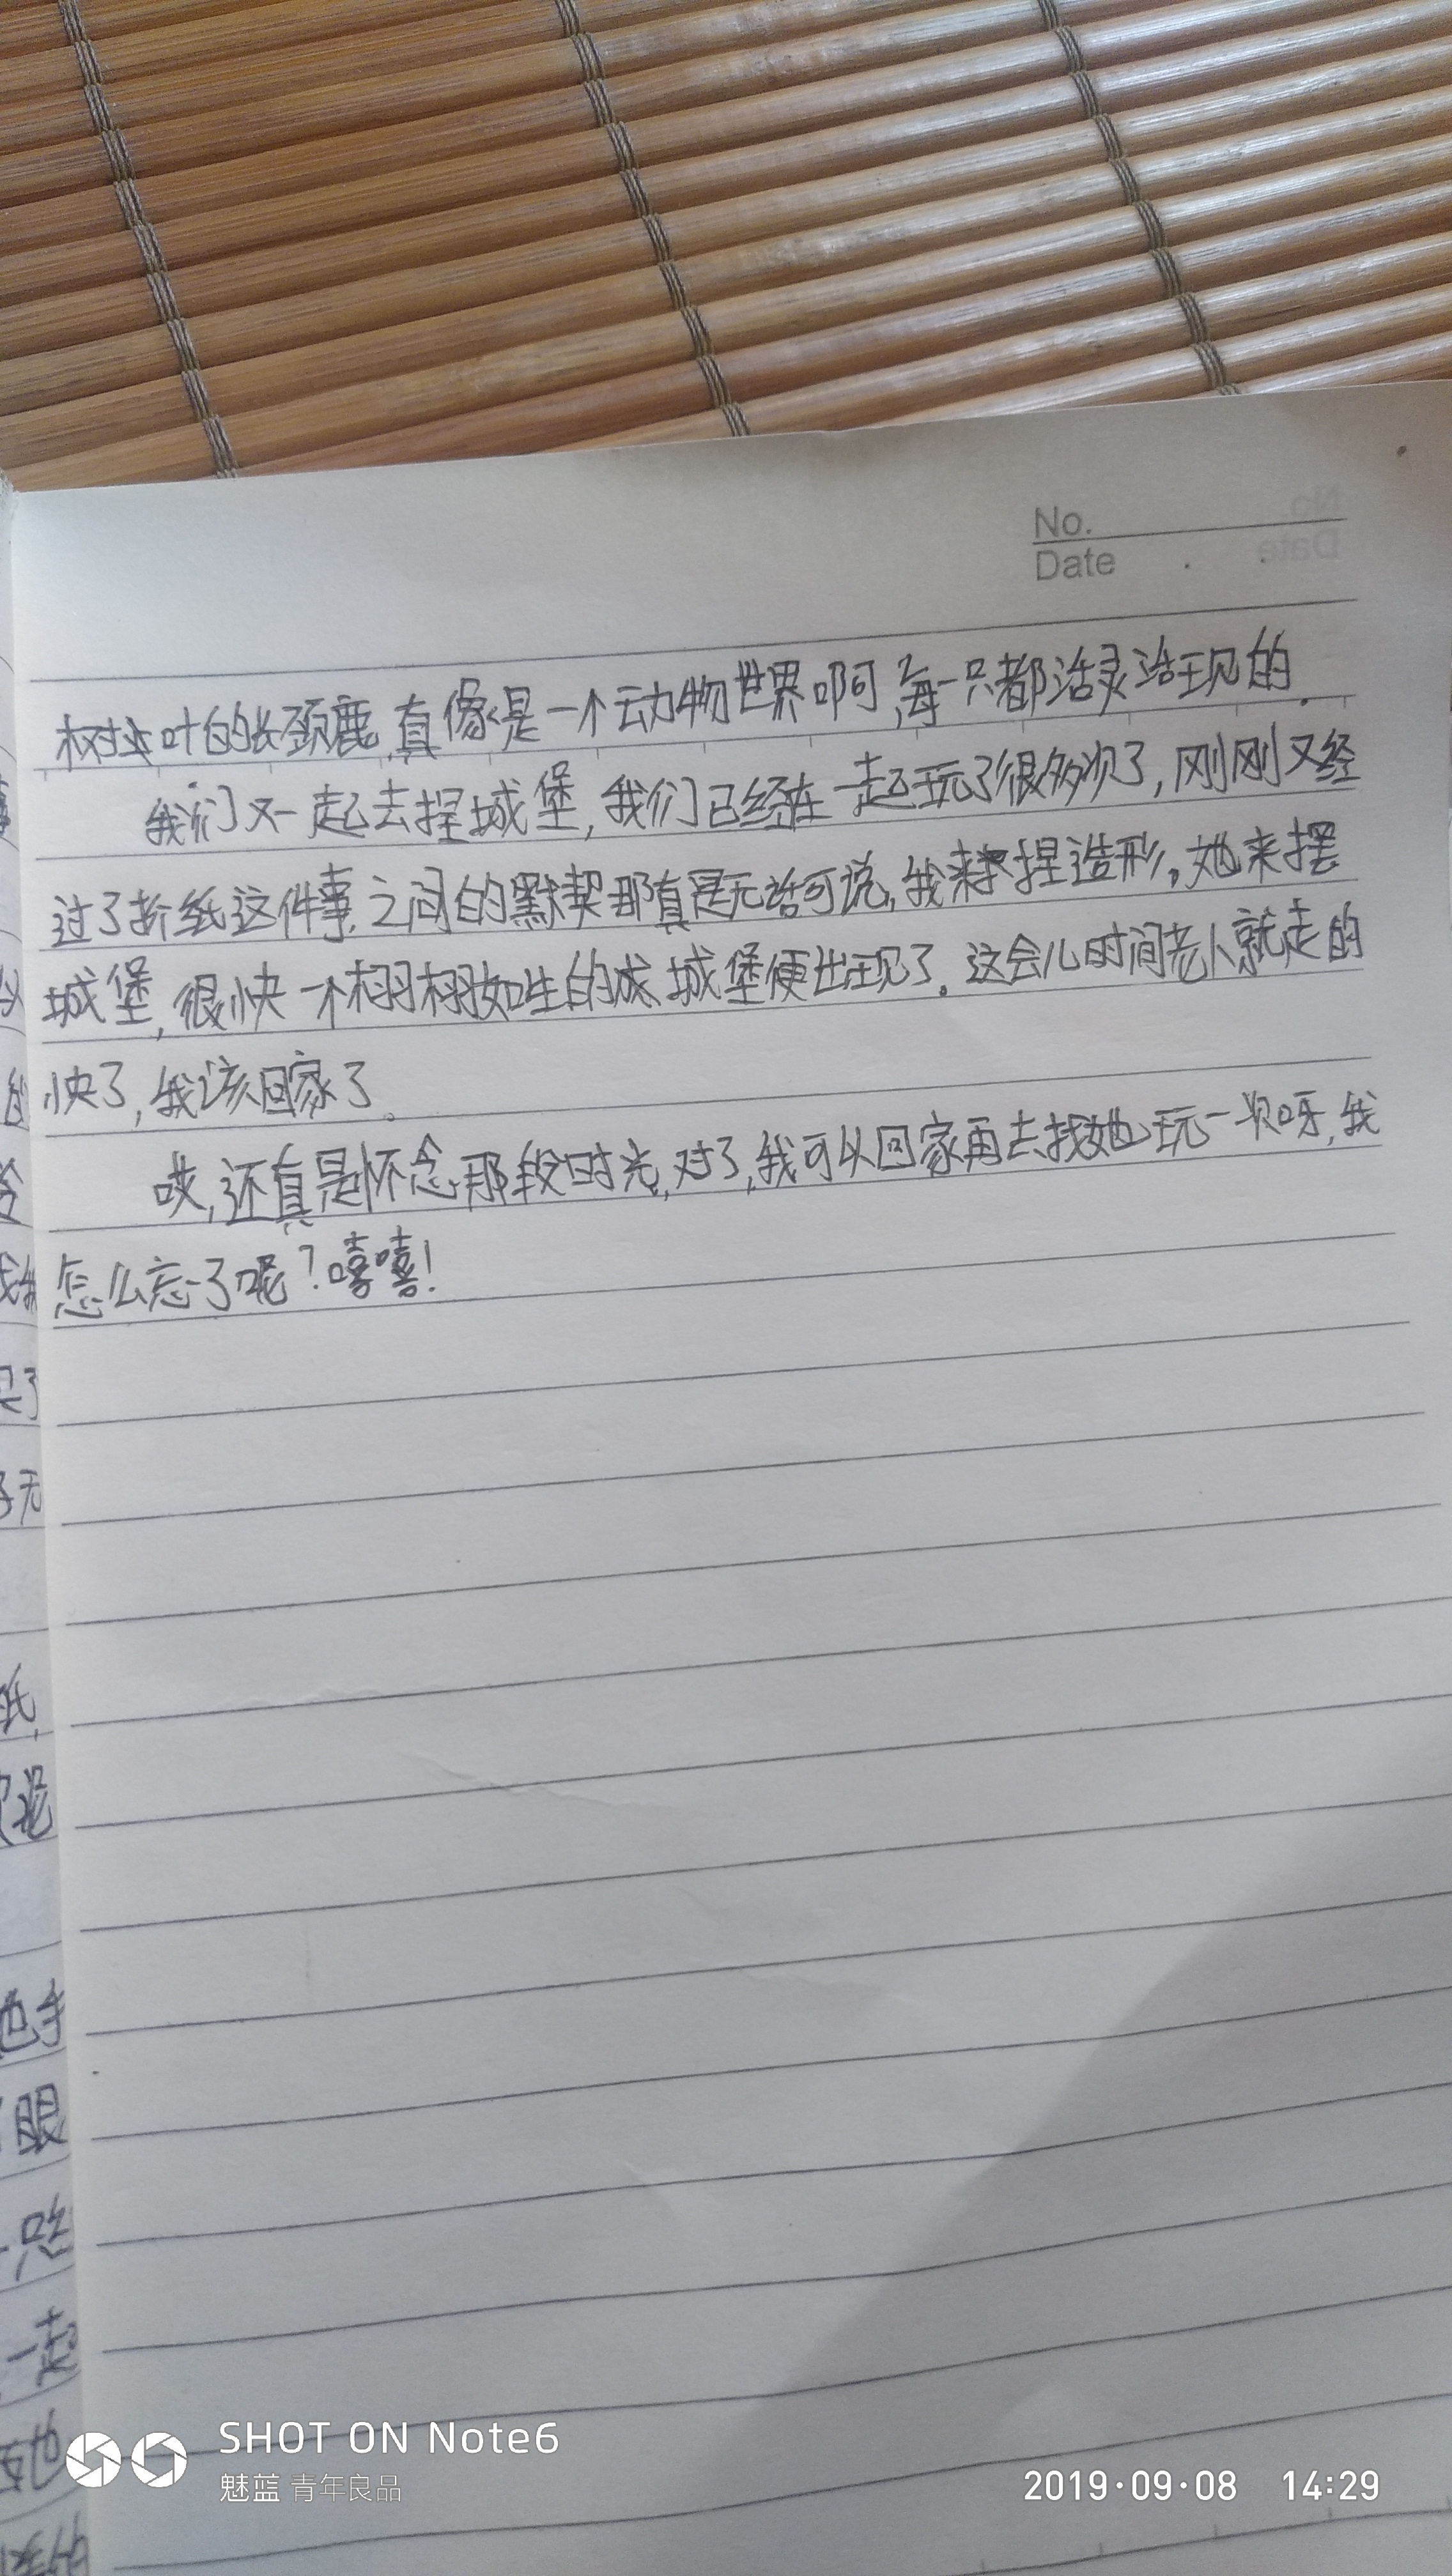 No.
Date
树叶的长颈鹿,真像是一个动物世界啊,每一只都活灵活现的.
我们又一起去捏城堡,我们已经在一起玩了很多次了,刚刚又经
过了折纸这件事,之间的默契那真是无话可说,我来捏造形。她来摆
城堡,很快一个栩栩如生的城堡便出现了。这会儿时间老人就走的
快了,我该回家了。
哎,还真是怀念那段时光,对了,我可以回家再去找她玩一次呀,我
怎么忘了呢?嘻嘻!
SHOT ON Note6
魅蓝 青年良品
2019·09·08 14:29